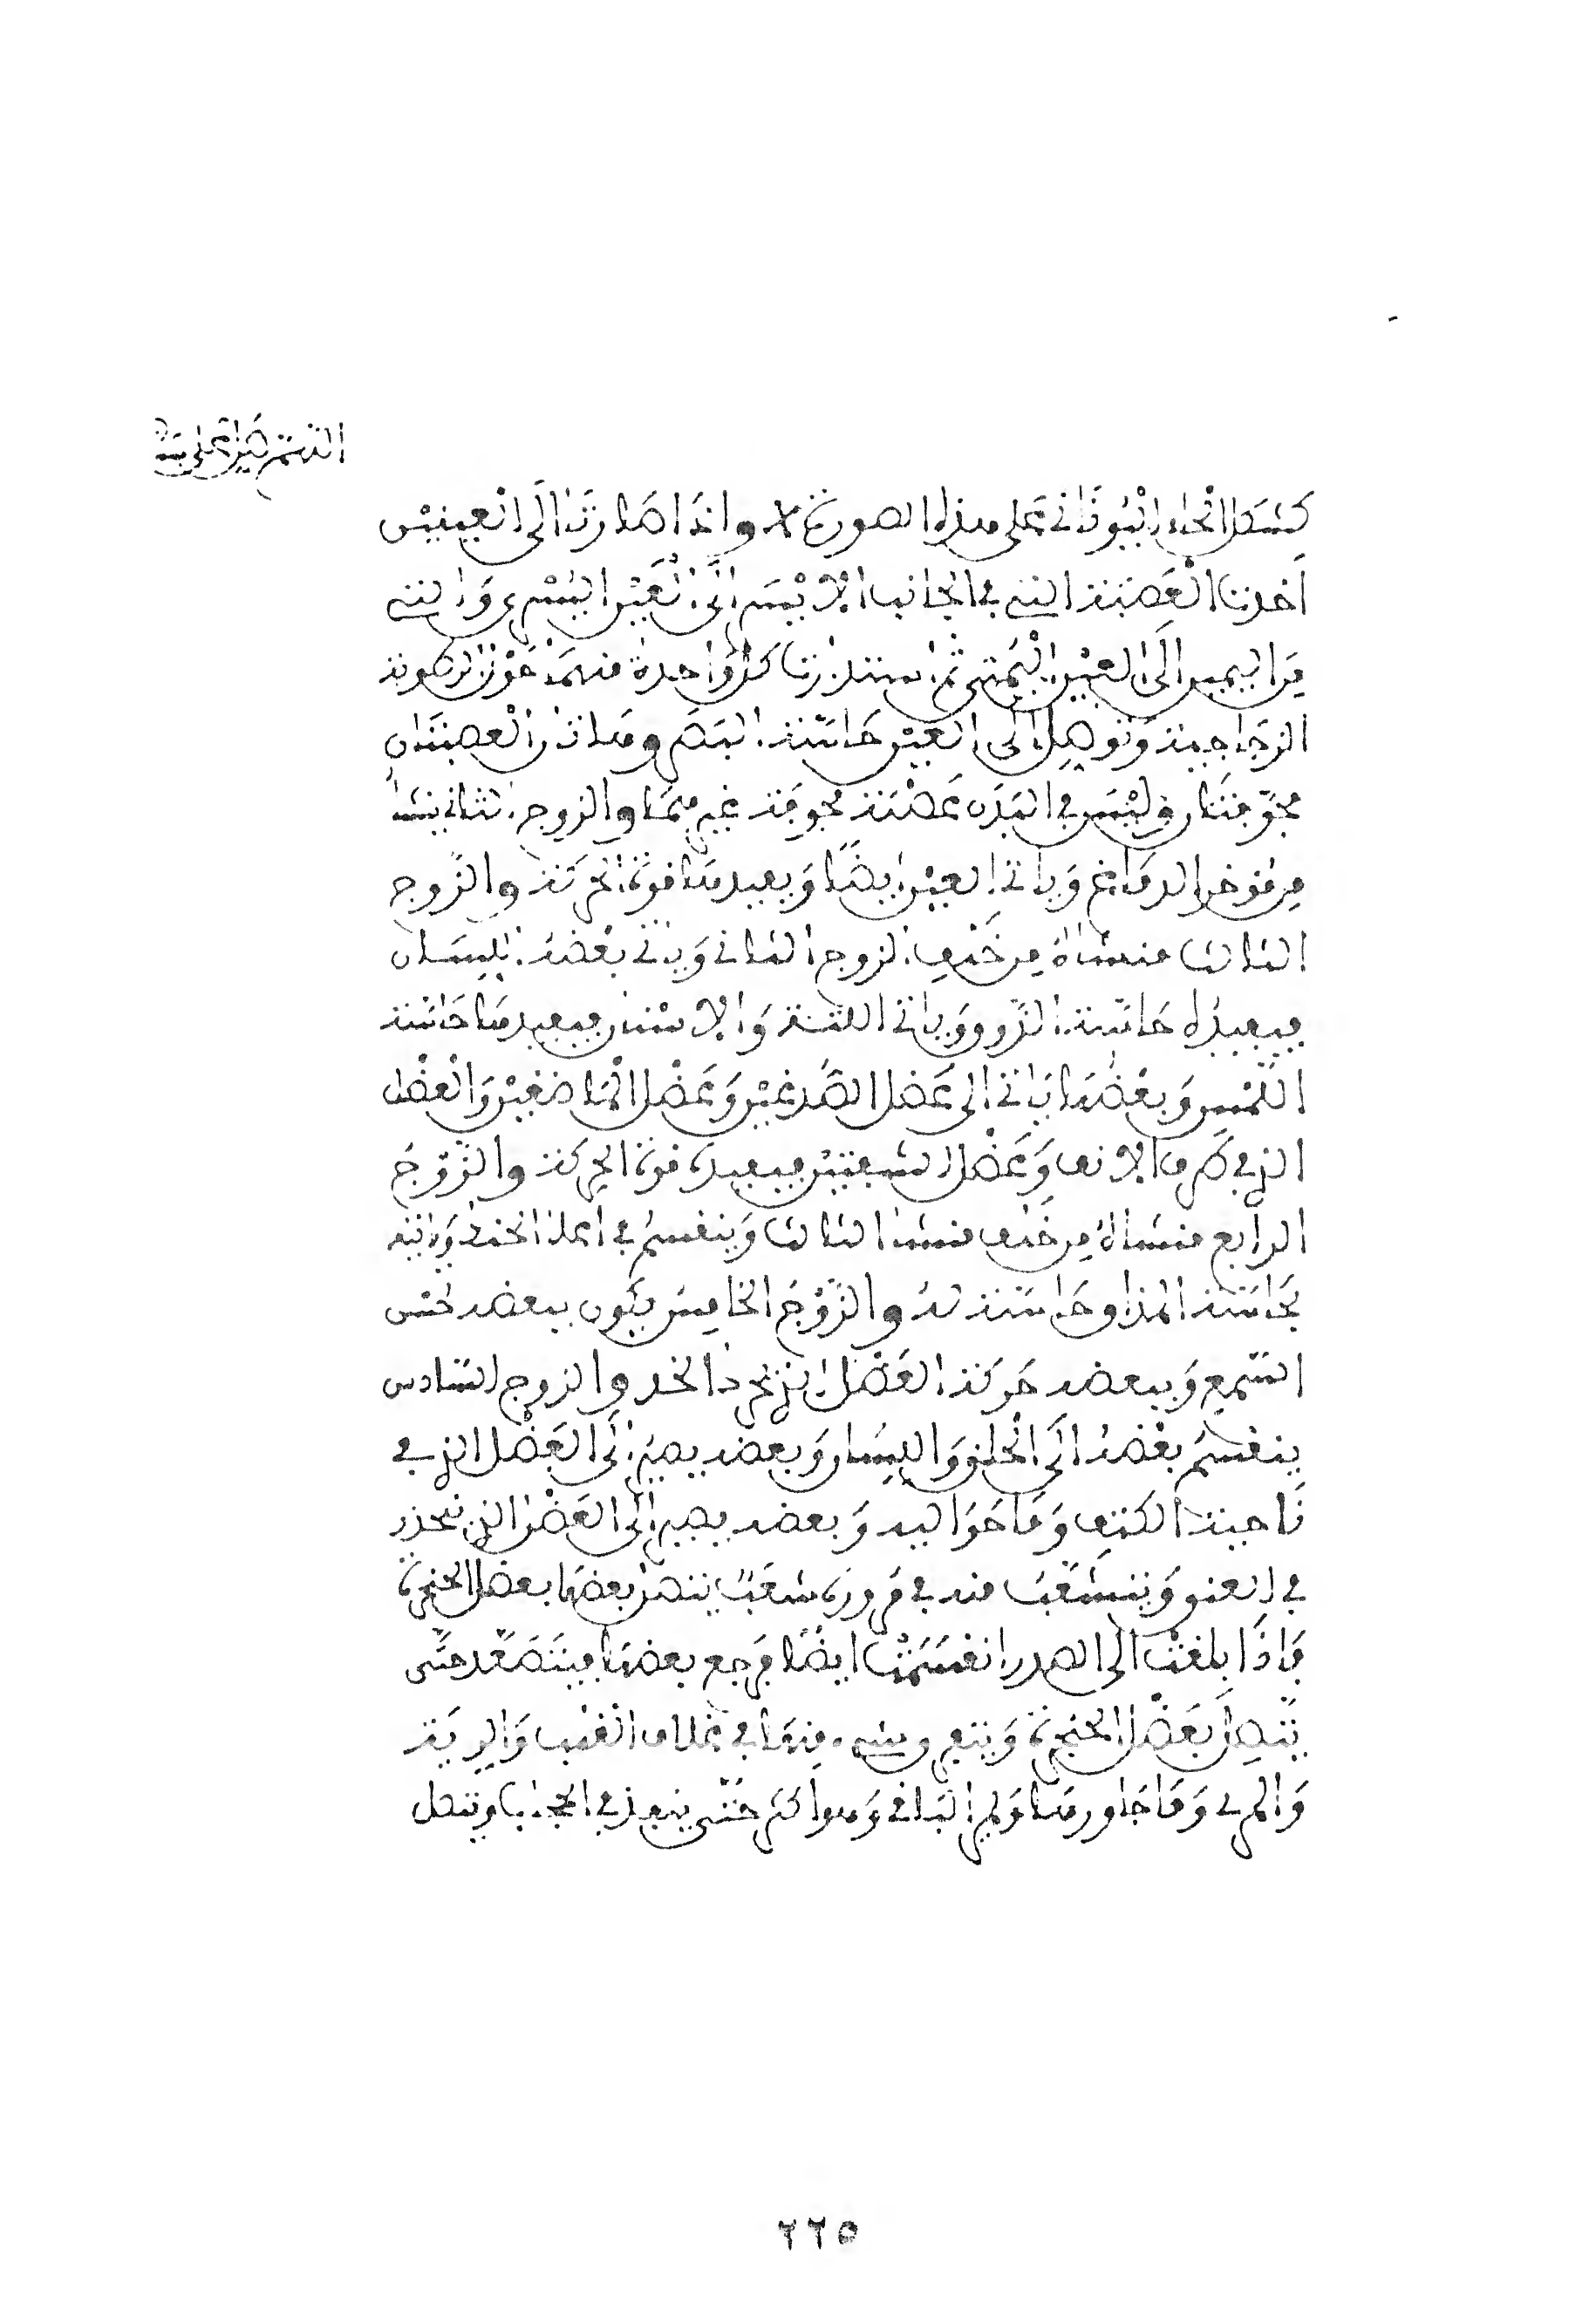 كشكل الخاء اليوناني على هذه الصورة x واذا صارتا الى العينين
اخذت العصبة التي في الجانب الايسر الى العين اليسرى والتي
من اليمين الى العين اليمنى ثم استدارت كل واحدة منهما حول الرطوبة
الزجاجية وتوصل الى العين حاسة البصر وهاتان العصبتان
مجوفتان وليس في البدن عصبة مجوفة غيرهما والزوج الثاني ينشأ
من مؤخر الدماغ وياتي العين ايضا ويفيدها قوة الحركة والزوج
الثالث منشاه من خلف الزوج الثاني وياتي بعضه اللسان
فيفيده حاسة الذوق وياتي اللثة والاسنان فيفيدها حاسة
اللمس وبعضها ياتي الى عضل الصدغين وعضل الماضغين والعضل
الذي في طرف الانف وعضل الشفتين فيفيده قوة الحركة والزوج
الرابع منشاه من خلف منشا الثالث وينقسم في اعلا الحنك وياتيه
بحاسة المذاق حاسة له والزوج الخامس يكون ببعضه حس
السمع وببعضه حركة العضل الذي يحرك الخد والزوج السادس
ينقسم بعضه الى الحلق واللسان وبعضه يصير الى العضل الذي في
ناحية الكتف وما حواليه وبعضه يصير الى العضل الذي ينحدر
في العنق ويتشعب منه في مروره شعب يتصل بعضها بعضل الحنجرة
فاذا بلغت الى الصدر انقسمت ايضا فرجع بعضها فيتصعد حتى
يتصل بعضل الحنجرة ويتفرق شيء منها في غلاف القلب والرية
والمري وما جاورها ويمر الباقي وهو اكثره حتى ينفذ في الحجاب ويتصل
٢٢٥